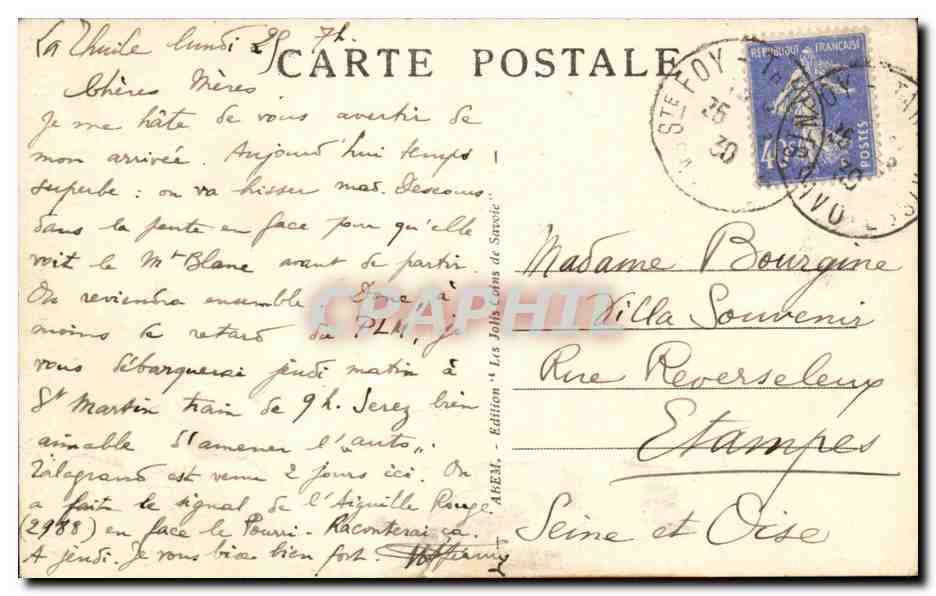 La Thuile lundi 25 7h.
CARTE POSTALE
Chères Mères
Je me hâte de vous avertir de
mon arrivée. Aujourd'hui temps
superbe : on va hisser mad. Descours
dans la pente en face pour qu'elle
voit le Mt Blanc avant de partir.
On reviendra ensemble. Donc à
moins de retard du PLM, je
vous débarquerai jeudi matin à
St Martin train de 9h. Serez bien
aimable d'amener l'"auto".
Zalagrand est venu 2 jours ici. On
a fait le signal de l'Aiguille Rouge
(2988) en face le Pourri. Raconterai ça.
A jeudi. Je vous bise bien fort.
ABEM. - Edition "Les Jolis Coins de Savoie"
REPUBLIQUE FRANÇAISE
POSTES
STE FOY - TARENTAISE
30
SAVOIE
Madame Bourgine
Villa Souvenir
Rue Reverseleux
Etampes
Seine et Oise
CPAPHIL